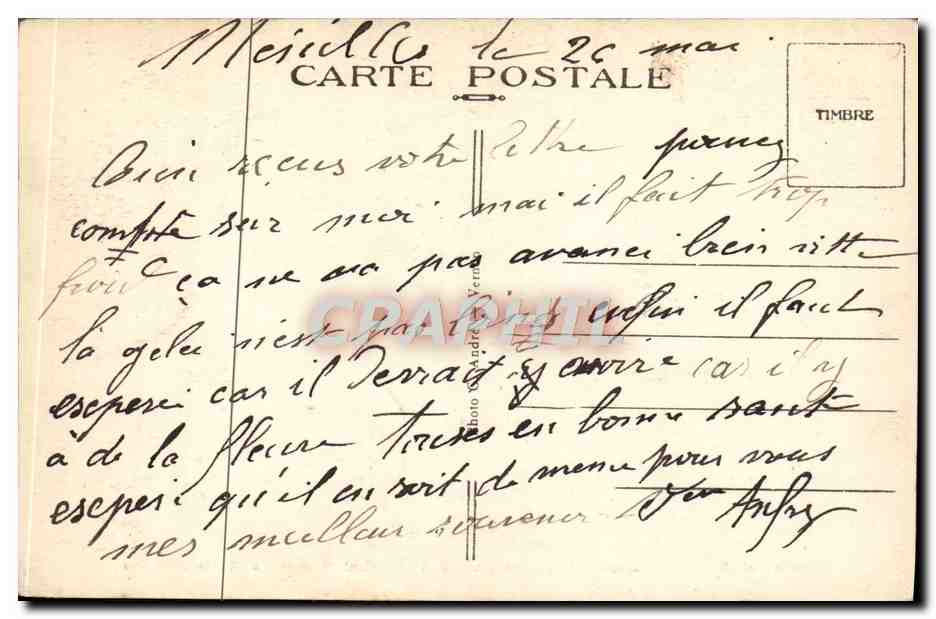 le 26 mai
CARTE POSTALE
TIMBRE
reçus votre lettre prenez
compte sur moi mai il fait trop
froid ça ne va pas avancé bien vitte
la gelé n'est pas loins enfin il faut
esperé car il devrait y avoir car il y
à de la fleure touses en bonne santé
esperé qu'il en soit de meme pour vous
mes meilleur souvenir
Photo André Vern
CRAPHIL